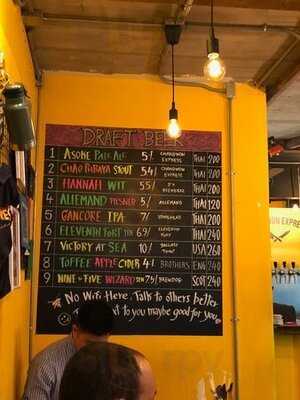 DRAFT BEER
1 ASONE PALE ALE 5% CHAROENKON EXPRESS THAI 200
2 CHAO PHRAYA STOUT 54/ EXPRESS THAI 240
3 HANNAH WIT 55/ THAI 240
4 ALLEMAND PILSNER 5/ ALLEMAND THAI 120
5 GANCORE IPA 7/ THAI 200
6 ELEVENTH FORT 6.9/ ELEVENTH FORT THAI 240
7 VICTORY AT SEA 10/ BALLAST POINT USA 260
8 TOFFEE APPLE CIDER 4% BROTHERS ENG 240
9 NINE TO FIVE WIZARD 7.5/ BREWDOG SCOT 240
No Wifi Here, Talk to others better
to you maybe good for you